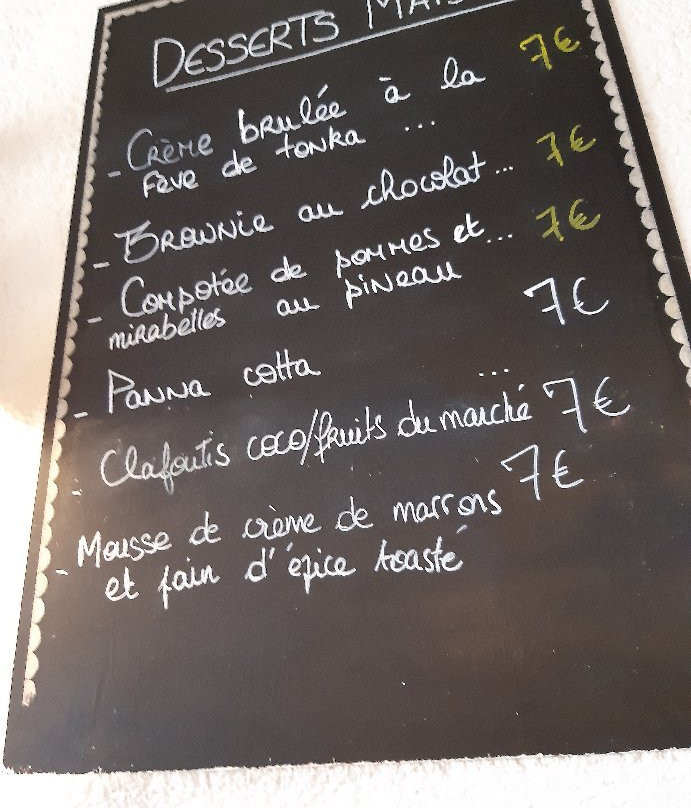 DESSERTS
- CRÈME bRulée à la 7€
Fève de tonka ...
- BROWNIE au chocolat... 7€
- Compotée de pommes et... 7€
mirabelles au pineau
- PANNA cotta ... 7€
- Clafoutis coco/fruits du marché 7€
- Mousse de crème de marrons 7€
et pain d'épice toasté